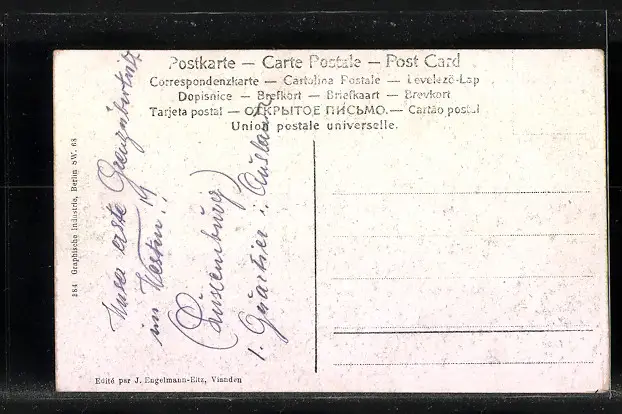 Postkarte — Carte Postale — Post Card
Correspondenzkarte — Cartolina Postale — Levelező-Lap
Dopisnice — Brefkort — Briefkaart — Brevkort
Tarjeta postal — ОТКРЫТОЕ ПИСЬМО. — Cartão postal
Union postale universelle.
Unser erste Grenzübertritt
im Westen!!
(Luxemburg)
1. Quartier i. Ausland
284 Graphische Industrie, Berlin SW. 68
Edité par J. Engelmann-Eitz, Vianden